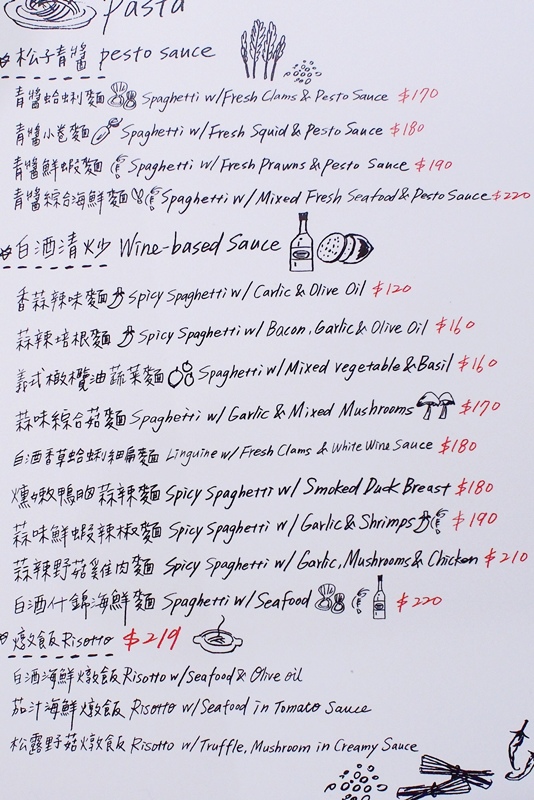 Pasta
松子青醬 pesto sauce
青醬蛤蜊麵 Spaghetti w/Fresh Clams & Pesto Sauce $170
青醬小卷麵 Spaghetti w/Fresh Squid & Pesto Sauce $180
青醬鮮蝦麵 Spaghetti w/Fresh Prawns & Pesto Sauce $190
青醬綜合海鮮麵 Spaghetti w/Mixed Fresh Seafood & Pesto Sauce $220
白酒清炒 Wine-based Sauce
香蒜辣味麵 Spicy Spaghetti w/Garlic & Olive Oil $120
蒜辣培根麵 Spicy Spaghetti w/Bacon, Garlic & Olive Oil $160
義式橄欖油蔬菜麵 Spaghetti w/Mixed vegetable & Basil $160
蒜味綜合菇麵 Spaghetti w/Garlic & Mixed Mushrooms $170
白酒香草蛤蜊細扁麵 Linguine w/Fresh Clams & White Wine Sauce $180
燻嫩鴨胸蒜辣麵 Spicy Spaghetti w/Smoked Duck Breast $180
蒜味鮮蝦辣椒麵 Spicy Spaghetti w/Garlic & Shrimps $190
蒜辣野菇雞肉麵 Spicy Spaghetti w/Garlic, Mushrooms & Chicken $210
白酒什錦海鮮麵 Spaghetti w/Seafood $220
燉飯 Risotto $219
白酒海鮮燉飯 Risotto w/Seafood & Olive oil
茄汁海鮮燉飯 Risotto w/Seafood in Tomato Sauce
松露野菇燉飯 Risotto w/Truffle, Mushroom in Creamy Sauce